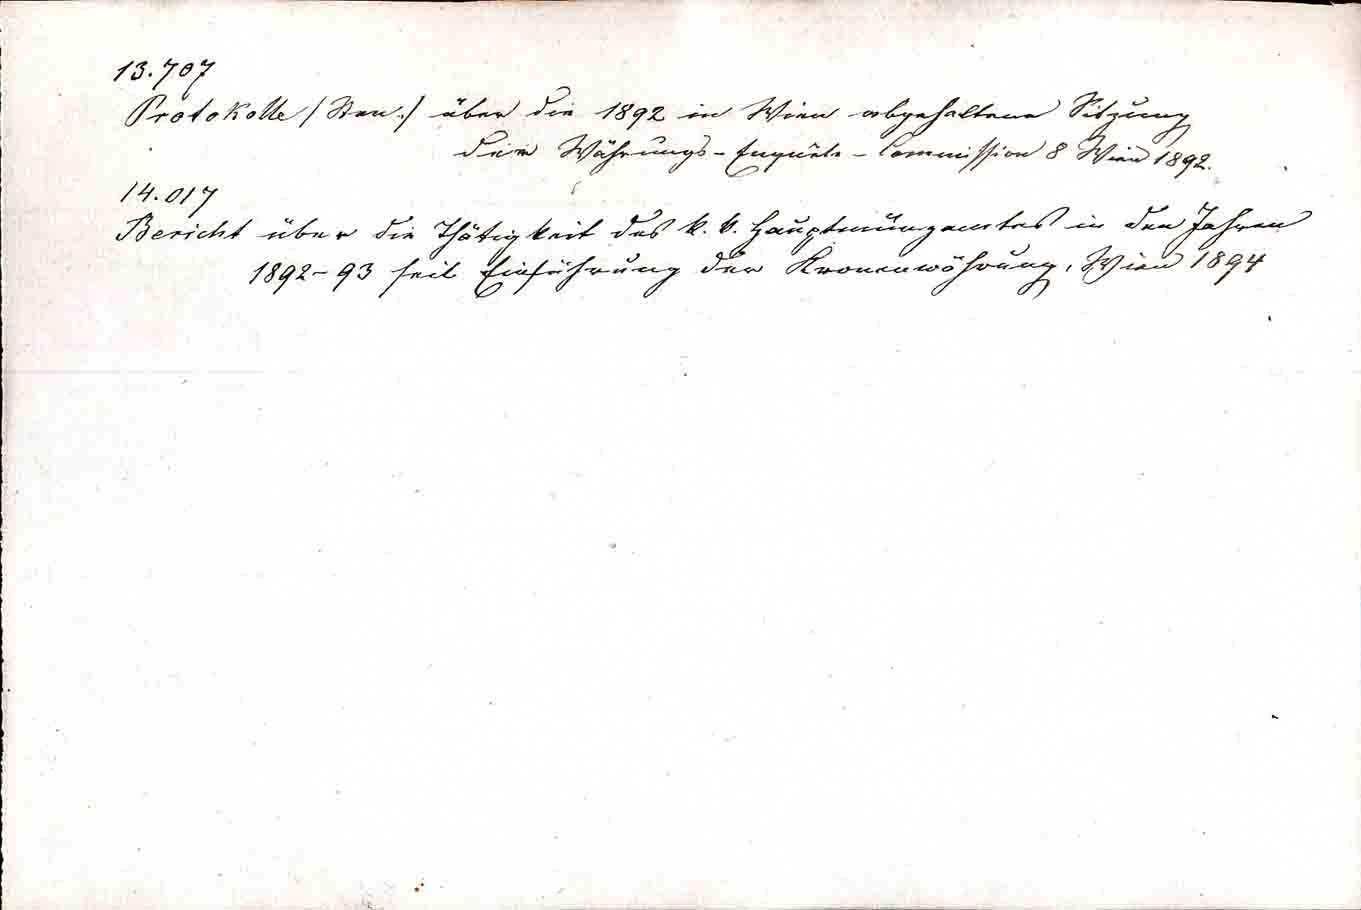 13.707
Protokolle /Sten./ über die 1892 in Wien abgehaltene Sitzung
der Währungs-Enquête-Commission 8 Wien 1892.
14.017
Bericht über die Thätigkeit des k. k. Hauptmünzamtes in den Jahren
1892-93 seit Einführung der Kronenwährung, Wien 1894